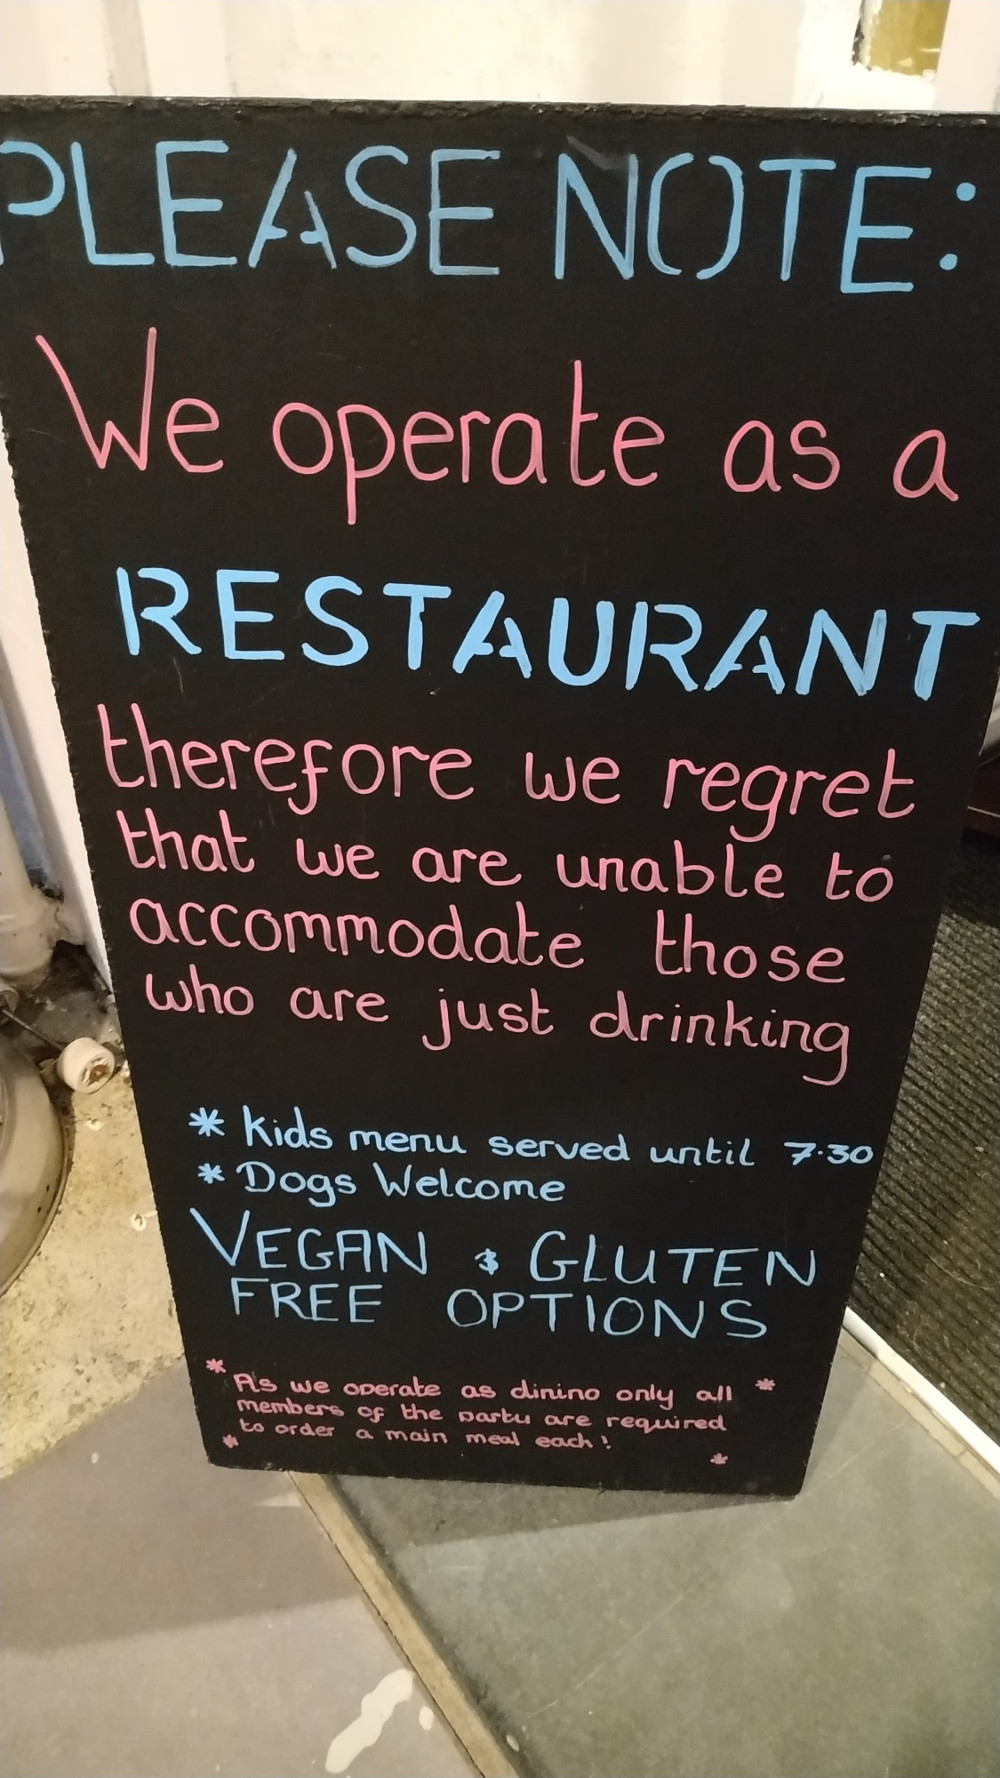 PLEASE NOTE:
We operate as a
RESTAURANT
therefore we regret
that we are unable to
accommodate those
who are just drinking
* Kids menu served until 7.30
* Dogs Welcome
VEGAN & GLUTEN
FREE OPTIONS
* As we operate as dining only all *
members of the party are required
* to order a main meal each! *